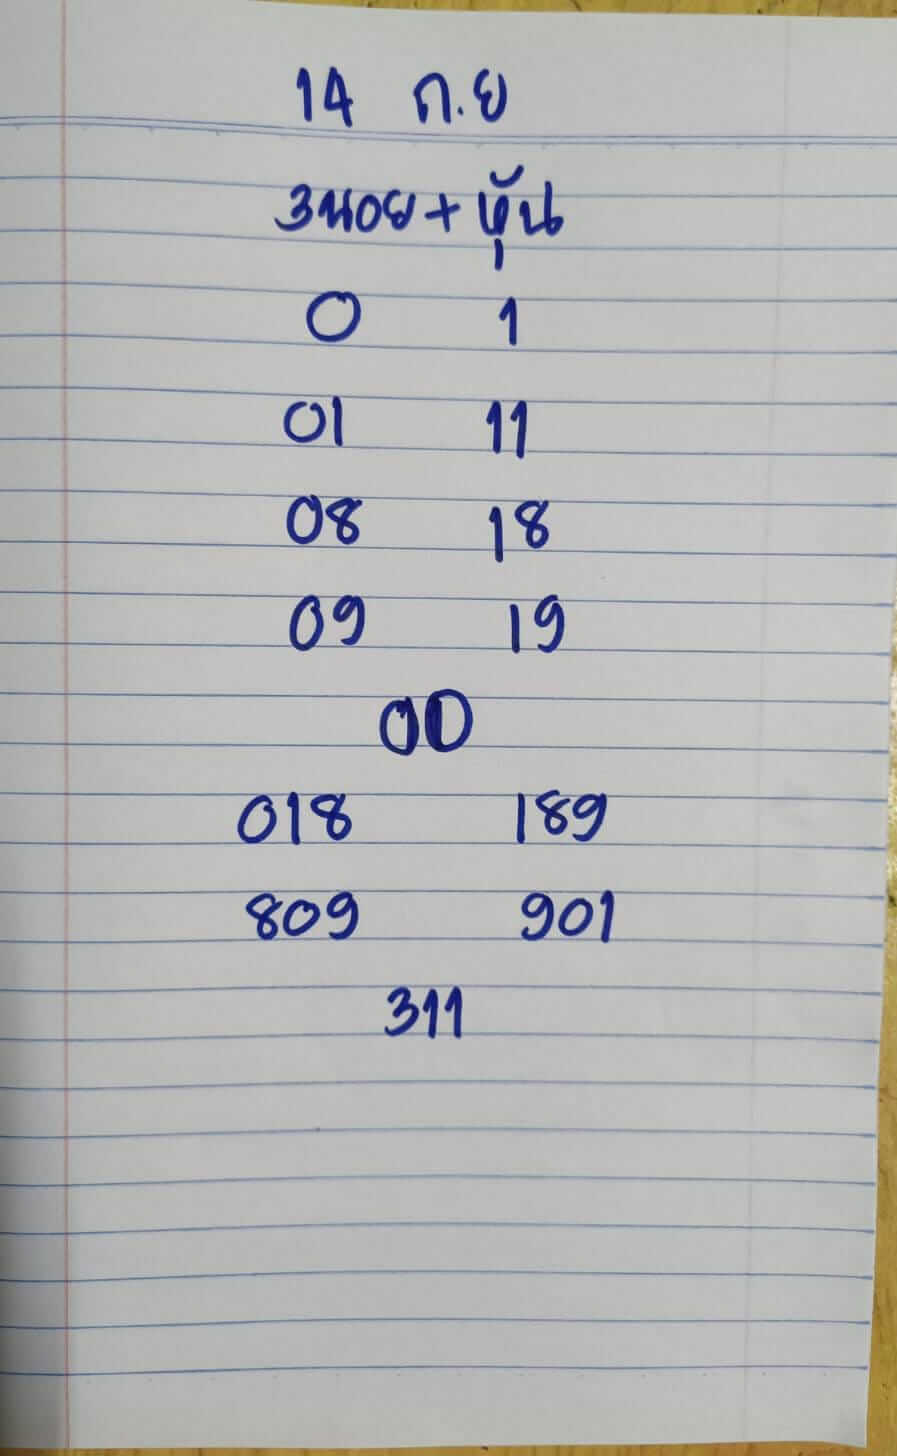 14 ก.ย
3นอย + หุ้น
0 1
01 11
08 18
09 19
00
018 189
809 901
311